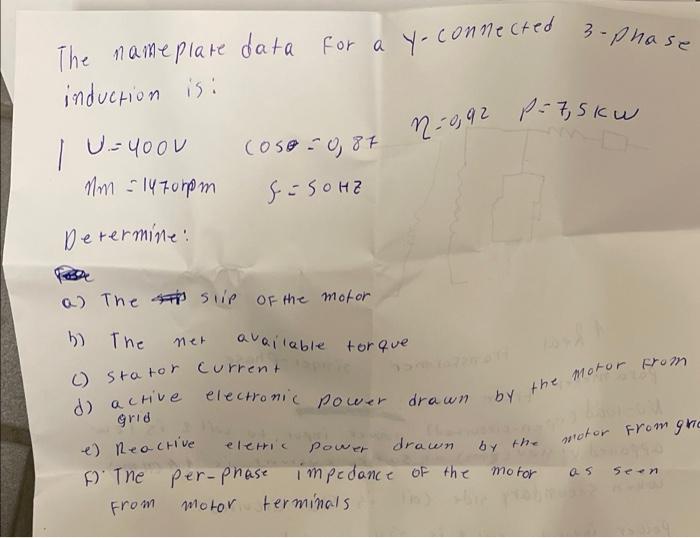 The nameplate data For a Y-connected 3-phase
induction is:
U=400V cosθ=0,87 η=0,92 P=7,5KW
nm=1470rpm f=50HZ
Determine:
a) The slip OF the motor
b) The net available torque
c) Stator current
d) active electronic power drawn by the motor From
grid
e) Reactive eletric power drawn by the motor From
F) The per-phase impedance of the motor as seen
From motor terminals